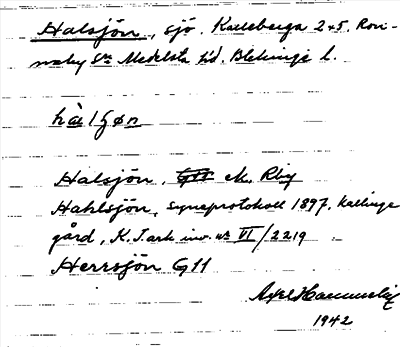 Halsjön, sjö. Karleberga 2 o 5. Ron-
neby Sn Medelsta hd. Blekinge l.
hàlʃøn
Halsjön, Gtr ek. Rby
Hahlsjön, Syneprotokoll 1897, Kallinge
gård, K.J. ark inv. nr VI/2219
Herrsjön G11
Axel
1942